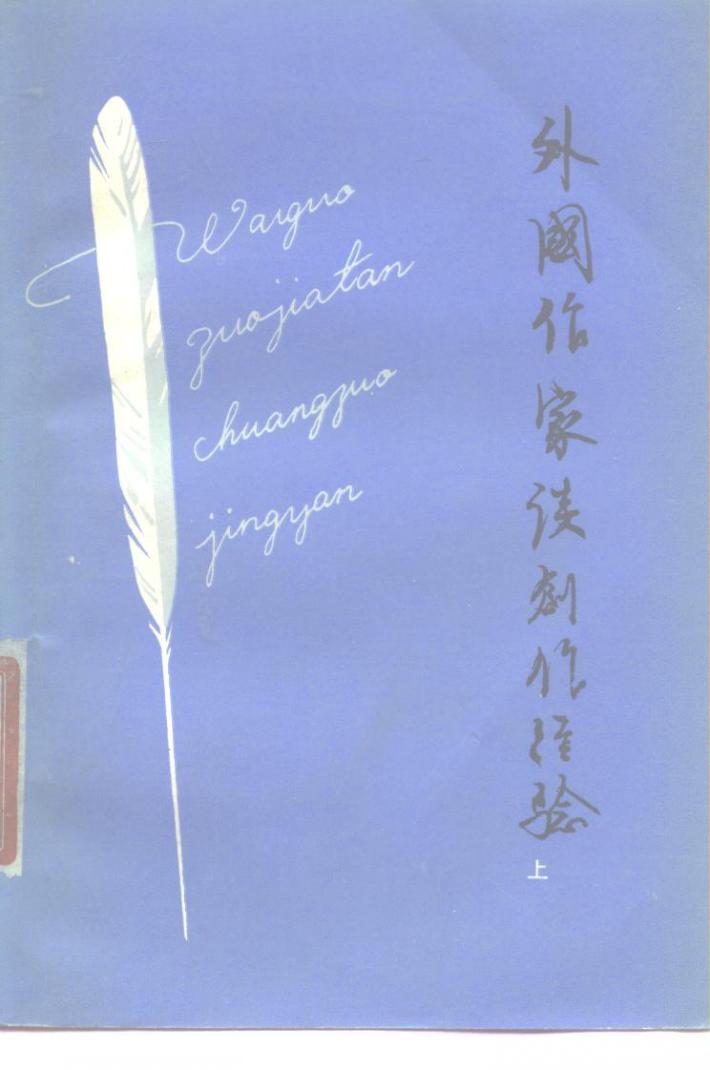 Waiguo
zuojiatan
chuangzuo
jingyan
外國作家谈創作经验
上